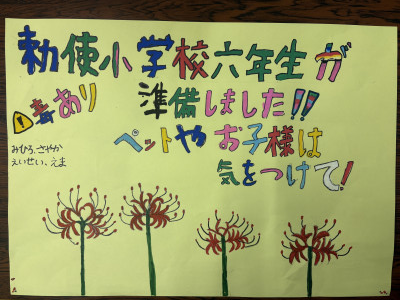 勅使小学校六年生が
準備しました!!
毒あり
ペットや お子様は
気をつけて!
みひろ、さやか
えいせい、えま